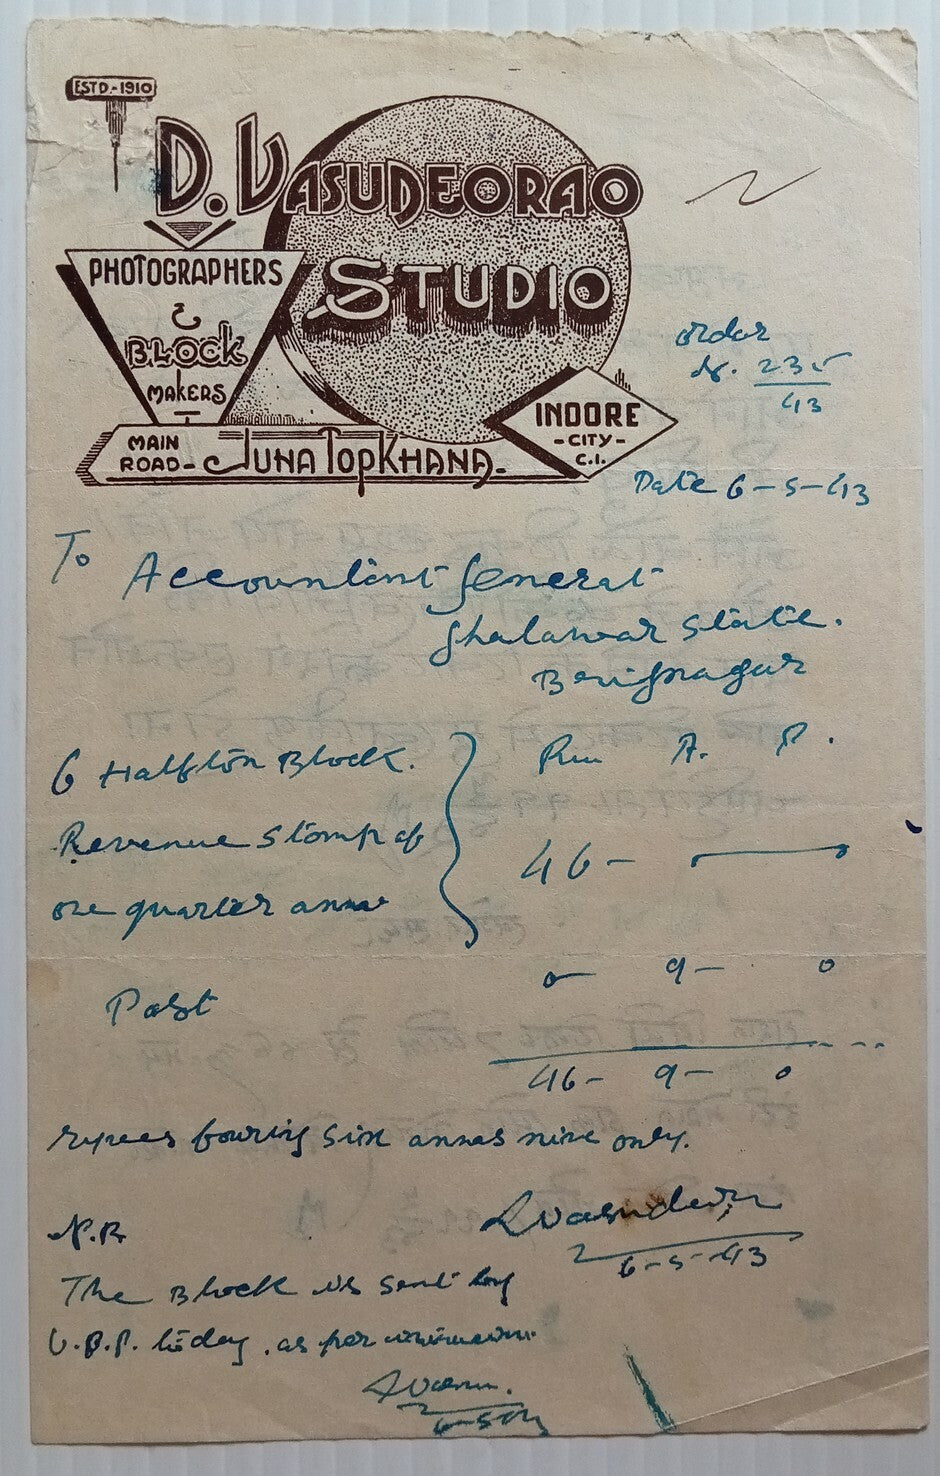 ESTD-1910
D. VASUDEORAO
STUDIO
PHOTOGRAPHERS
&
BLOCK
MAKERS
MAIN ROAD- JUNA TOPKHANA-
INDORE
-CITY-
C.I.
order
No. 235
43
Date 6-5-43
To
Accountant General
Jhalawar State.
Brijnagar
6 Halfton Block.
Revenue Stamp of
one quarter anna
Rs. A. P.
46 -
Post
0- 9- 0
46- 9- 0
rupees fourtiy six annas nine only.
6-5-43
N.B
The Block is sent by
V.P.P. today. as per